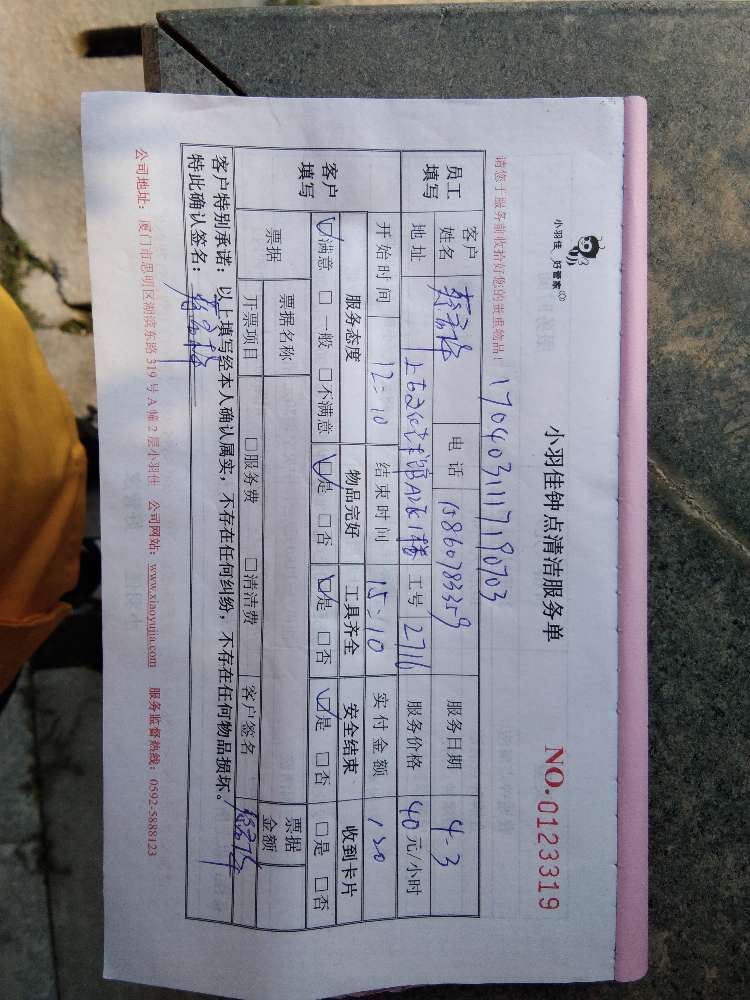 小羽佳 好管家
小羽佳钟点清洁服务单
NO.0123319
请您于服务前收拾好您的贵重物品！
17040311117190703
员工填写
客户姓名 电话 15860783359 服务日期 4-3
地址 工号 2716 服务价格 40元/小时
开始时间 12:10 结束时间 15:10 实付金额 120
客户填写
服务态度 物品完好 工具齐全 安全结束 收到卡片
☑满意 □一般 □不满意 ☑是 □否 ☑是 □否 ☑是 □否 □是 □否
票据 票据名称 票据金额
开票项目 □服务费 □清洁费 客户签名
客户特别承诺：以上填写经本人确认属实，不存在任何纠纷，不存在任何物品损坏。
特此确认签名：
公司地址：厦门市思明区湖滨东路319号A幢2层小羽佳 公司网站：www.xiaoyujia.com 服务监督热线：0592-5888123